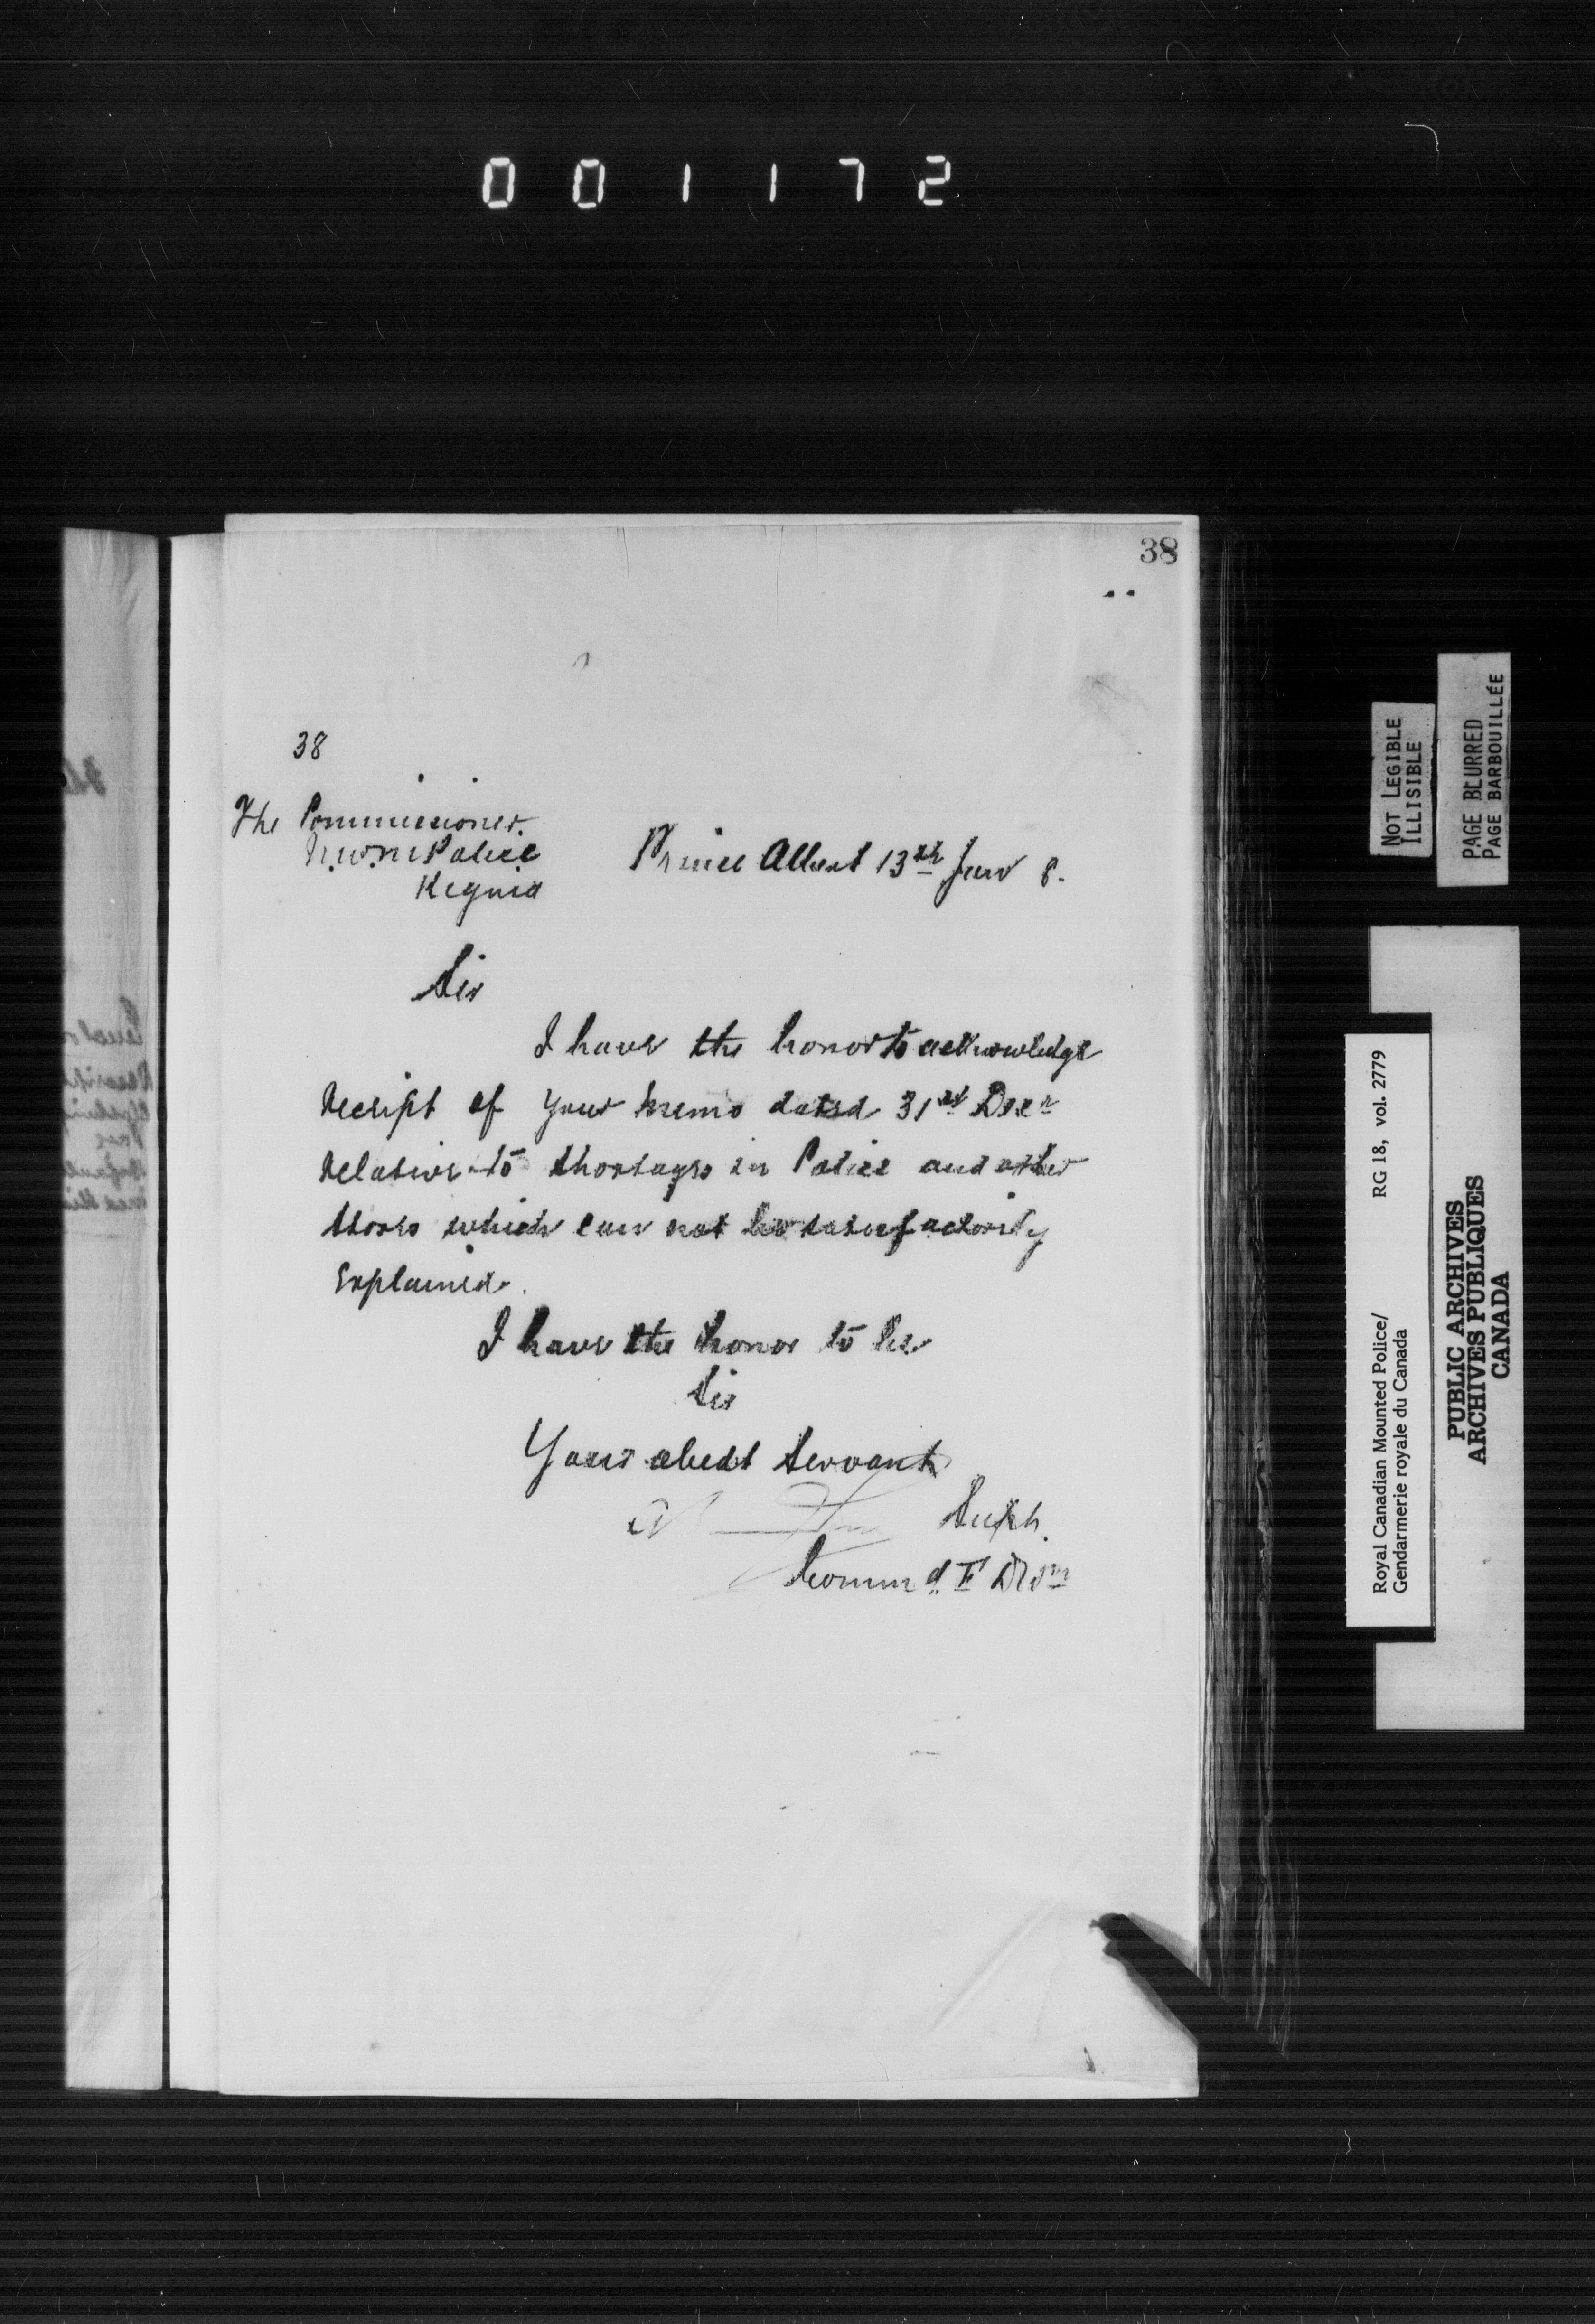 001172
38
38
The Commissioner.
N.W.M Police
Regina
Prince Albert 13th Jan 8.
Sir
I have the honor to acknowledge
receipt of your memo dated 31st Decr
relative to shortages in Police and other
stores which can not be satisfactorily
explained.
I have the honor to be
Sir
Your obedt Servant
Supt.
Commd. F Divn
NOT LEGIBLE
ILLISIBLE
PAGE BLURRED
PAGE BARBOUILLÉE
Royal Canadian Mounted Police/
Gendarmerie royale du Canada
RG 18, vol. 2779
PUBLIC ARCHIVES
ARCHIVES PUBLIQUES
CANADA